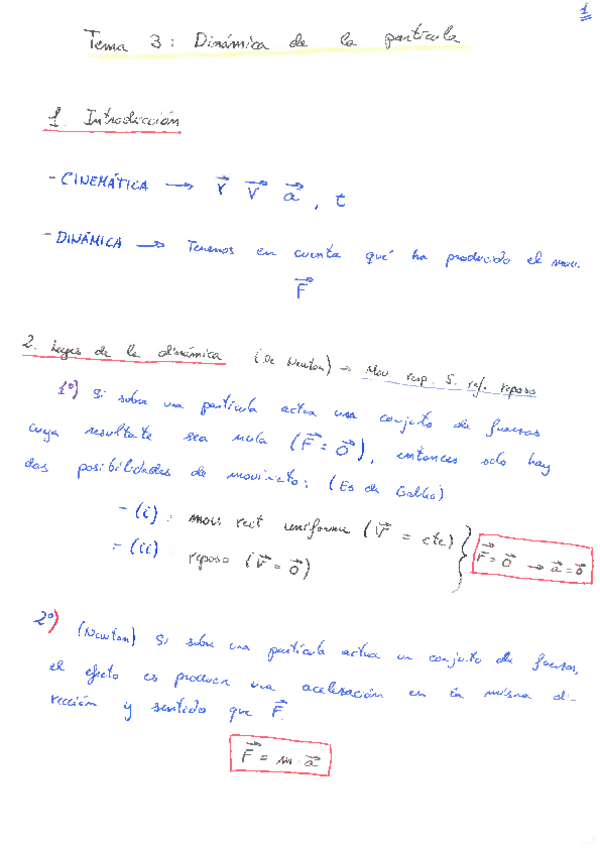 1
Tema 3: Dinámica de la partícula
1. Introducción
- CINEMÁTICA → r⃗ v⃗ a⃗ , t
- DINÁMICA → Tenemos en cuenta qué ha producido el mov.
F⃗
2. Leyes de la dinámica (de Newton) → Mov. resp. S. ref. reposo
1º) Si sobre una partícula actua un conjunto de fuerzas
cuya resultante sea nula (F⃗ = 0⃗), entonces solo hay
dos posibilidades de movimiento: (Es de Galileo)
- (i) : mov. rect uniforme (V⃗ = cte)
- (ii) : reposo (V⃗ = 0⃗)
F⃗ = 0⃗ → a⃗ = 0⃗
2º) (Newton) Si sobre una partícula actua un conjunto de fuerzas,
el efecto es producir una aceleración en la misma di-
rección y sentido que F⃗.
F⃗ = m · a⃗